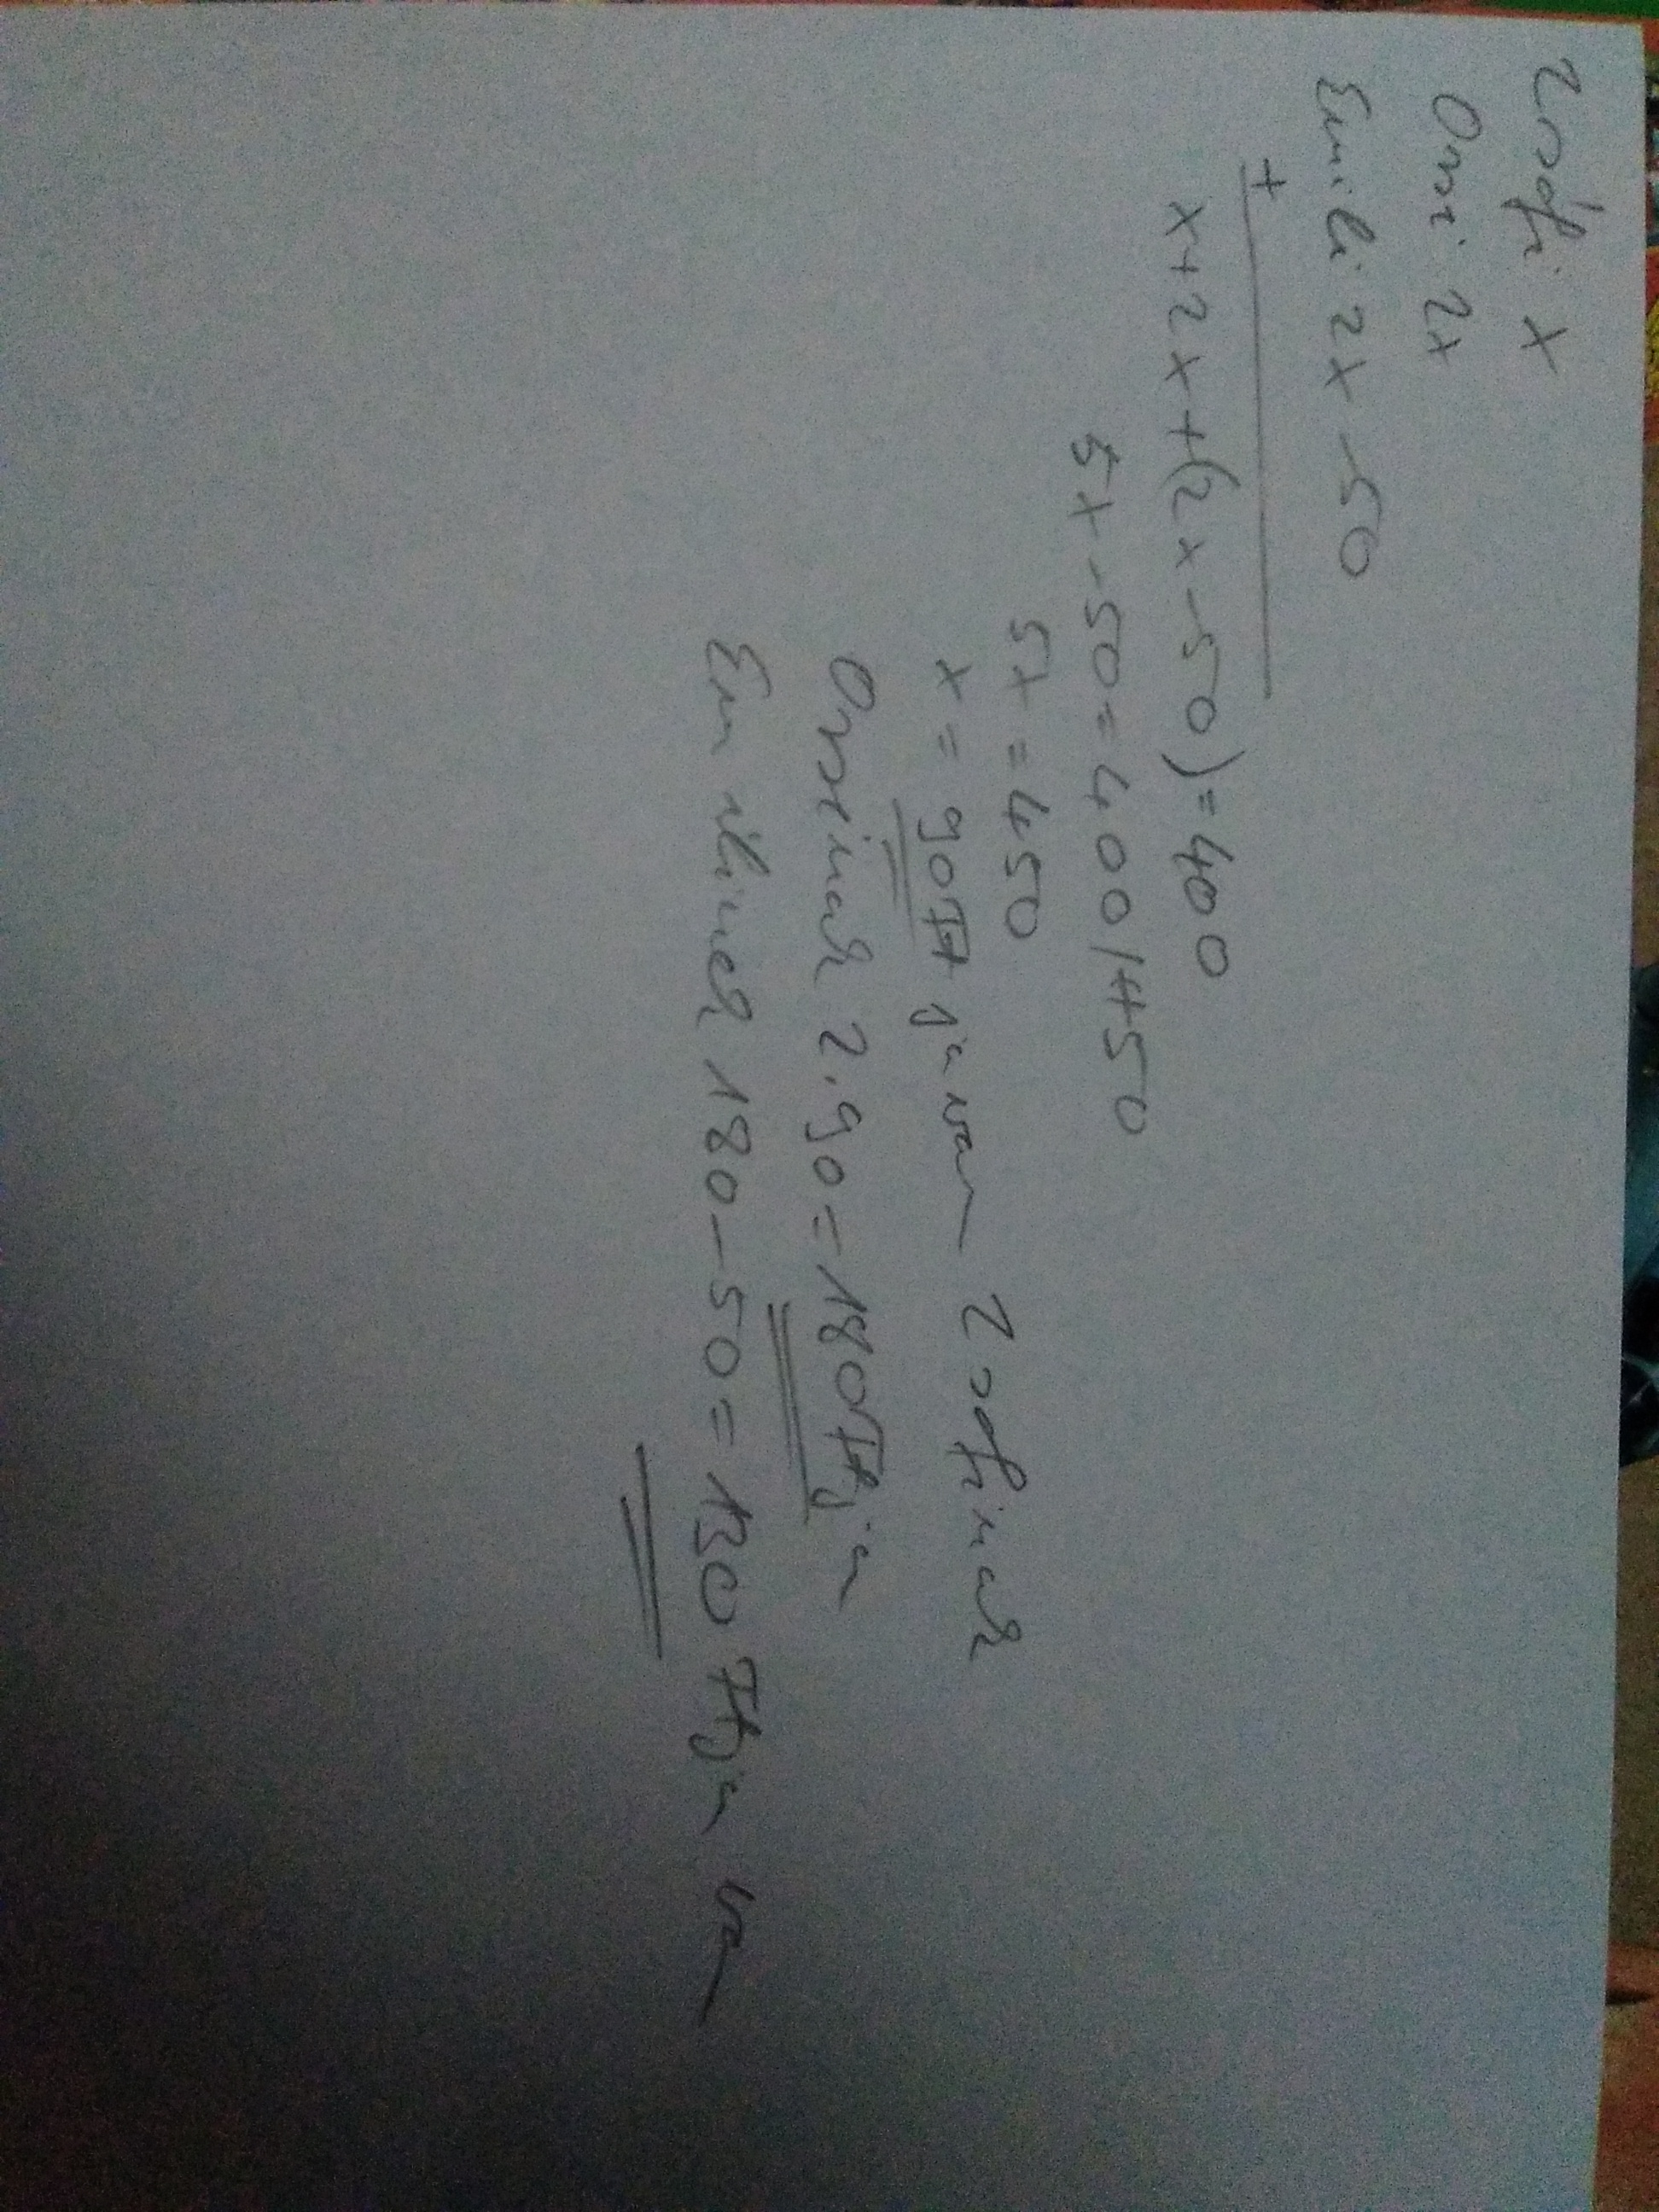 Zsófi x
Orsi 2x
Emili 2x - 50
+
x + 2x + (2x - 50) = 400
5x - 50 = 400 /+50
5x = 450
x = 90 Ft ja van Zsófinak
Orsinak 2.90 = 180 Ft ja
Emilinek 180 - 50 = 130 Ft ja van